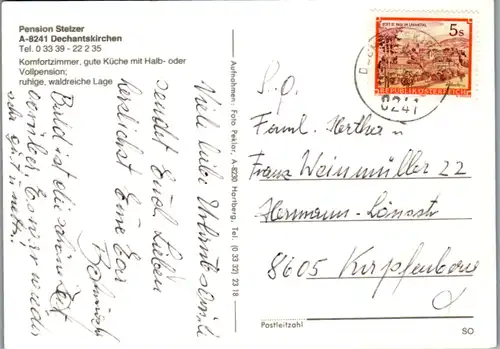 Pension Stelzer
A-8241 Dechantskirchen
Tel. 0 33 39 - 22 2 35
Komfortzimmer, gute Küche mit Halb- oder
Vollpension;
ruhige, waldreiche Lage
Viele liebe Urlaubs
sendet Euch Lieben
herzlichst Eure
Bald ist die schöne Zeit
vorüber. Es war wieder
sehr gut u. nett!
Aufnahmen: Foto Peklar, A-8230 Hartberg, Tel. (0 33 32) 23 18
5s
REPUBLIK ÖSTERREICH
8241
S. g.
Faml. Hertha u
Franz Weinmüller 22
Hermann-Lönsstr
8605 Kapfenberg
Postleitzahl
SO